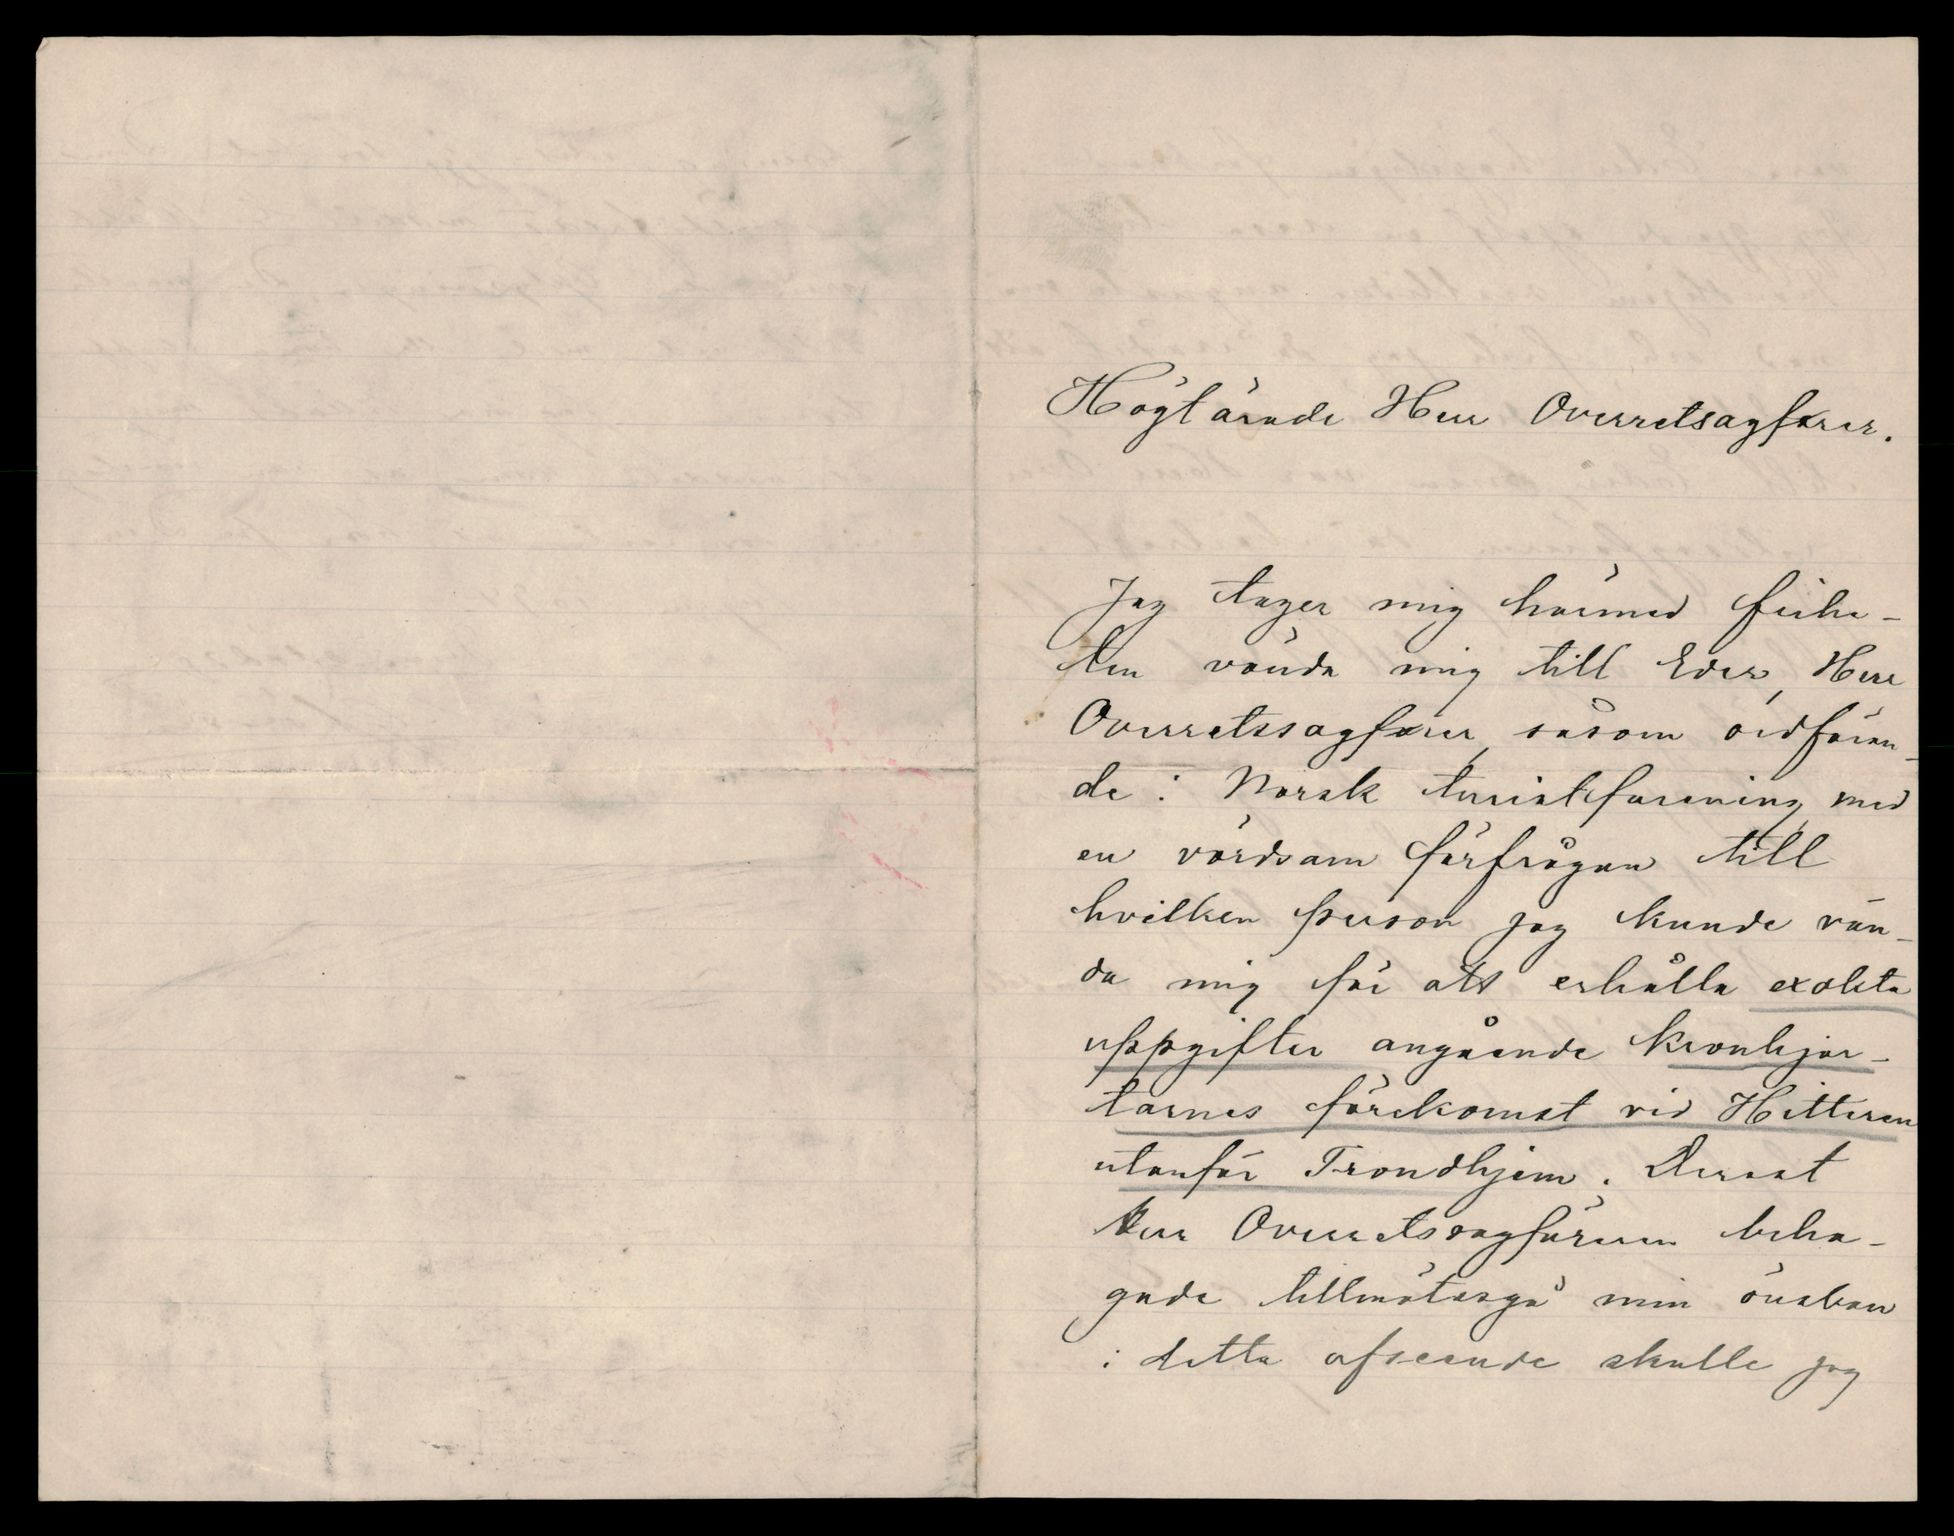 Högtärade Herr Overretsagfører.
Jag tager mig härmed frihe-
ten vända mig till Eder, Herr
Overretssagfører, såsom ordföran-
de i Norsk turistforening, med
en vördsam förfrågan till
hvilken person jag kunde vän-
da mig för att erhålla exakta
uppgifter angående kronhjor-
tarnes förekomst vid Hitteren
utanför Trondhjem. Derest
Herr Overretssagföreren beha-
gade tillmötesgå min önskan
i detta afseende skulle jag